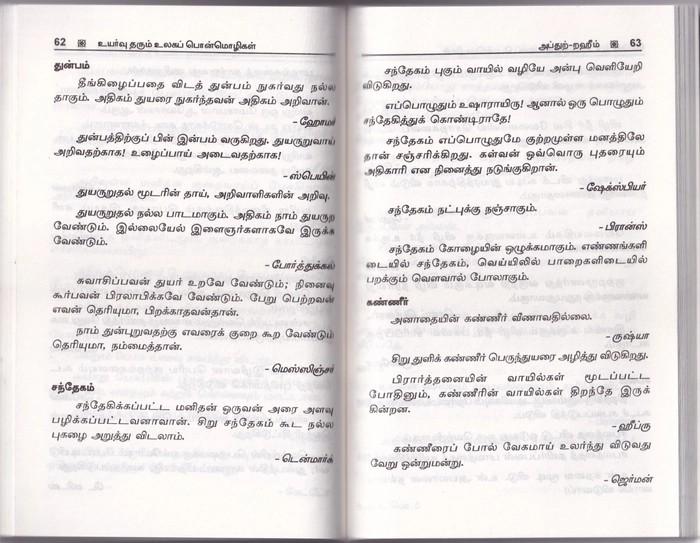 62 உயர்வு தரும் உலகப் பொன்மொழிகள்
துன்பம்
தீங்கிழைப்பதை விடத் துன்பம் நுகர்வது நல்ல
தாகும். அதிகம் துயரை நுகர்ந்தவன் அதிகம் அறிவான்.
- ஹோமர்
துன்பத்திற்குப் பின் இன்பம் வருகிறது. துயருறுவாய்
அறிவதற்காக! உழைப்பாய் அடைவதற்காக!
- ஸ்பெயின்
துயருறுதல் மூடரின் தாய், அறிவாளிகளின் அறிவு.
துயருறுதல் நல்ல பாடமாகும். அதிகம் நாம் துயருற
வேண்டும். இல்லையேல் இளைஞர்களாகவே இருக்க
வேண்டும்.
- போர்த்துக்கல்
சுவாசிப்பவன் துயர் உறவே வேண்டும்; நினைவு
கூர்பவன் பிரலாபிக்கவே வேண்டும். பேறு பெற்றவன்
எவன் தெரியுமா, பிறக்காதவன்தான்.
நாம் துன்புறுவதற்கு எவரைக் குறை கூற வேண்டும்
தெரியுமா, நம்மைத்தான்.
- மெஸ்ஸிஞ்சர்
சந்தேகம்
சந்தேகிக்கப்பட்ட மனிதன் ஒருவன் அரை அளவு
பழிக்கப்பட்டவனாவான். சிறு சந்தேகம் கூட நல்ல
புகழை அறுத்து விடலாம்.
- டென்மார்க்
அப்துற்-றஹீம் 63
சந்தேகம் புகும் வாயில் வழியே அன்பு வெளியேறி
விடுகிறது.
எப்பொழுதும் உஷாராயிரு! ஆனால் ஒரு பொழுதும்
சந்தேகித்துக் கொண்டிராதே!
சந்தேகம் எப்பொழுதுமே குற்றமுள்ள மனத்திலே
தான் சஞ்சரிக்கிறது. கள்வன் ஒவ்வொரு புதரையும்
அதிகாரி என நினைத்து நடுங்குகிறான்.
- ஷேக்ஸ்பியர்
சந்தேகம் நட்புக்கு நஞ்சாகும்.
- பிரான்ஸ்
சந்தேகம் கோழையின் ஒழுக்கமாகும். எண்ணங்களி
டையில் சந்தேகம், வெய்யிலில் பாறைகளிடையில்
பறக்கும் வெளவால் போலாகும்.
கண்ணீர்
அனாதையின் கண்ணீர் வீணாவதில்லை.
- ருஷ்யா
சிறு துளிக் கண்ணீர் பெருந்துயரை அழித்து விடுகிறது.
பிரார்த்தனையின் வாயில்கள் மூடப்பட்ட
போதினும், கண்ணீரின் வாயில்கள் திறந்தே இருக்
கின்றன.
- ஹீப்ரு
கண்ணீரைப் போல் வேகமாய் உலர்ந்து விடுவது
வேறு ஒன்றுமன்று.
- ஜெர்மன்